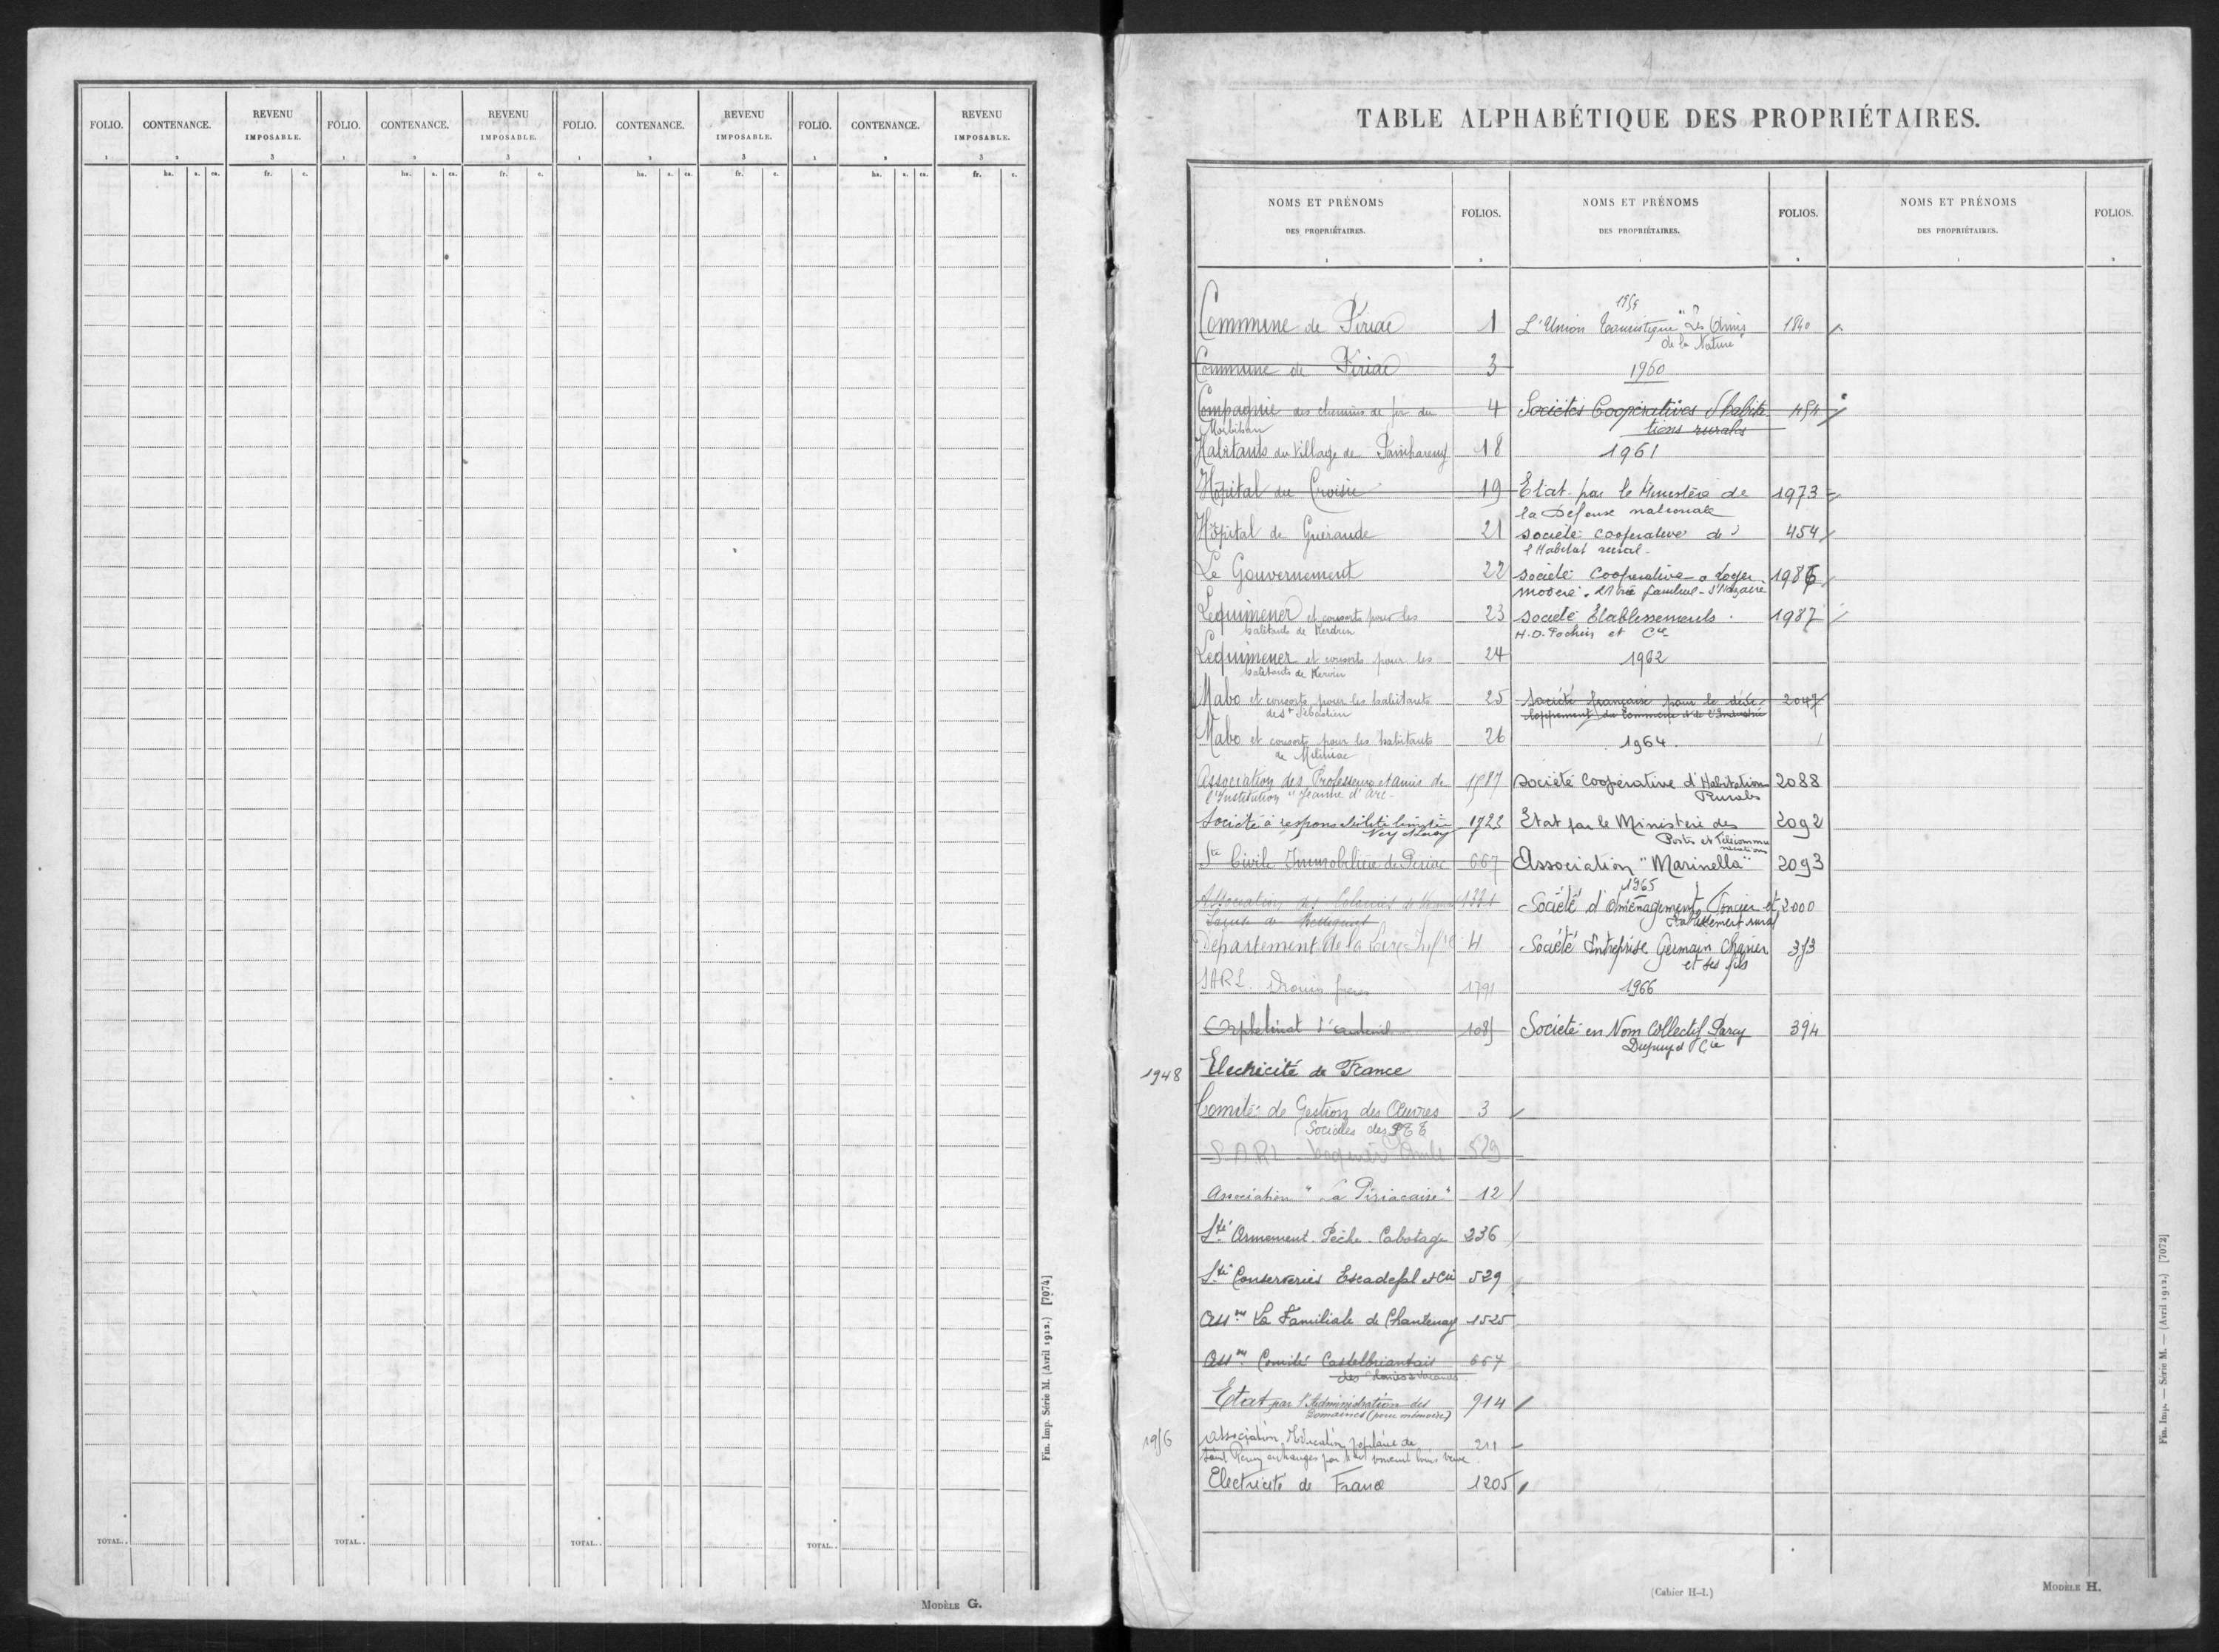 FOLIO. CONTENANCE. REVENU IMPOSABLE. FOLIO. CONTENANCE. REVENU IMPOSABLE. FOLIO. CONTENANCE. REVENU IMPOSABLE. FOLIO. CONTENANCE. REVENU IMPOSABLE.
1 2 3 1 2 3 1 2 3 1 2 3
ha. a. ca. fr. c. ha. a. ca. fr. c. ha. a. ca. fr. c. ha. a. ca. fr. c.
TOTAL.. TOTAL.. TOTAL.. TOTAL..
MODÈLE G.
Fin. Imp. Série M. (Avril 1912.) [7074]
TABLE ALPHABÉTIQUE DES PROPRIÉTAIRES.
NOMS ET PRÉNOMS
DES PROPRIÉTAIRES.
FOLIOS.
Commune de Piriac 1
Commune de Piriac 3
Compagnie des chemins de fer du 4
Morbihan
Habitants du Village de 18
Hôpital du Croisic 19
Hôpital de Guérande 21
Le Gouvernement 22
Lequimener et consorts pour les 23
habitants de Kerdrien
Lequimener et consorts pour les 24
habitants de Kervin
Mabo et consorts pour les habitants 25
de St Sébastien
Mabo et consorts pour les habitants 26
de
Association des Professeurs et amis de 1587
l'Institution "Jeanne d'Arc"
Société à responsabilité limitée 1723
Sté Civile Immobilière de Piriac 667
Association des Colonies de 1331
Département de la Loire Infre 4
SARL. Drouin frères 1791
Orphelinat d'Auteuil
1948 Electricité de France
Comité de Gestion des Œuvres 3
Sociales des PTT
S.A.R.L. 529
Association "La Piriacaise" 12
Sté Armement Pêche Cabotage 236
Sté Conserveries Escadefal et Cie 529
Asson La Familiale de Chantenay 1525
Asson Comité Castelbriantais 667
des
Etat par l'Administration des 914
Domaines (pour mémoire)
1956 Association Education populaire de 211
Electricité de France 1205
NOMS ET PRÉNOMS
DES PROPRIÉTAIRES.
FOLIOS.
1959
L'Union Touristique "Les Amis 1840
de la Nature"
1960
Sociétés Coopératives d'habita- 454
tions rurales
1961
Etat par le Ministère de 1973
la Défense nationale
Société coopérative de 454
l'Habitat rural
Société Coopérative à loyer 1986
modéré. 21 rue - St Nazaire
Société Etablissements 1987
H.D. Pochin et Cie
1962
Société française pour le déve- 2047
loppement du Commerce et de l'Industrie
1964.
Société Coopérative d'Habitation 2088
Rurale
Etat par le Ministère des 2092
Postes et Télécommu
nications
Association "Marinella" 2093
1965
Société d'Aménagement Foncier et 2000
Etablissement rural
Société Entreprise Germain Charier 373
et ses fils
1966
Société en Nom Collectif Parcy 394
Dupuy et Cie
NOMS ET PRÉNOMS
DES PROPRIÉTAIRES.
FOLIOS.
(Cahier H-L)
MODÈLE H.
Fin. Imp. — Série M. — (Avril 1912.) [7072]